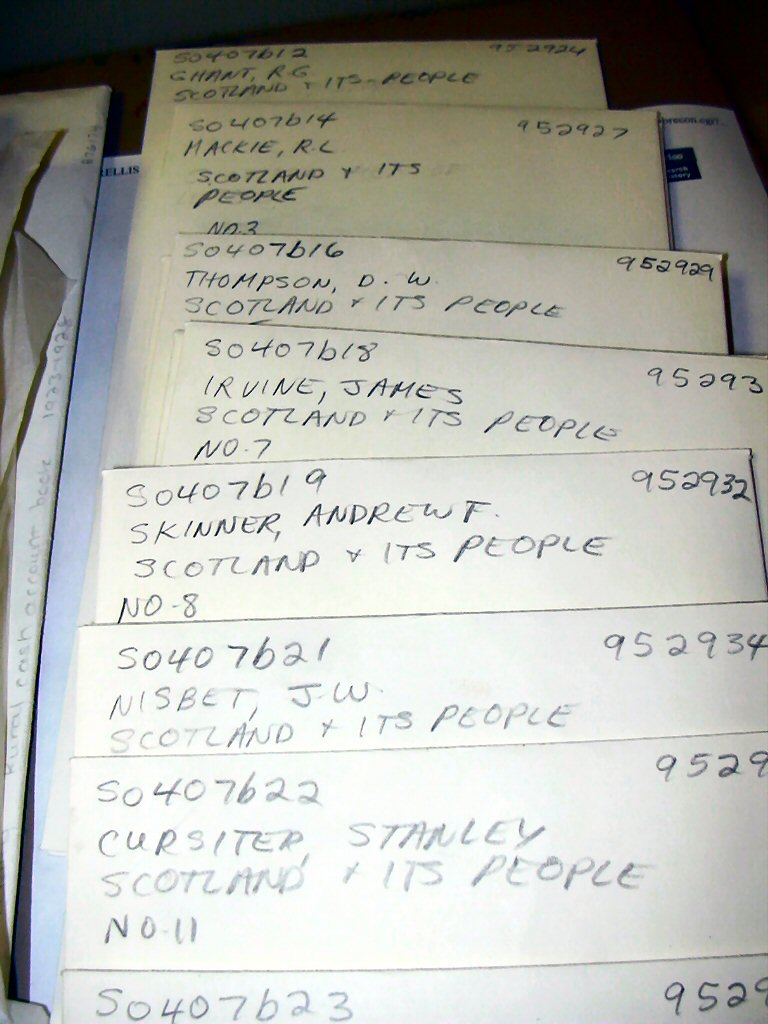 S0407b12 952924
GHANT, R.G
SCOTLAND + ITS PEOPLE
S0407b14 952927
MACKIE, R.L
SCOTLAND + ITS
PEOPLE
NO.3
S0407b16 952929
THOMPSON, D. W.
SCOTLAND + ITS PEOPLE
S0407b18 95293
IRVINE, JAMES
SCOTLAND + ITS PEOPLE
NO.7
S0407b19 952932
SKINNER, ANDREW F.
SCOTLAND + ITS PEOPLE
NO-8
S0407b21 952934
NISBET, J.W.
SCOTLAND + ITS PEOPLE
S0407b22 9529
CURSITER, STANLEY
SCOTLAND + ITS PEOPLE
NO-11
S0407b23 9529
RELLIS
cash account book 1923-1928